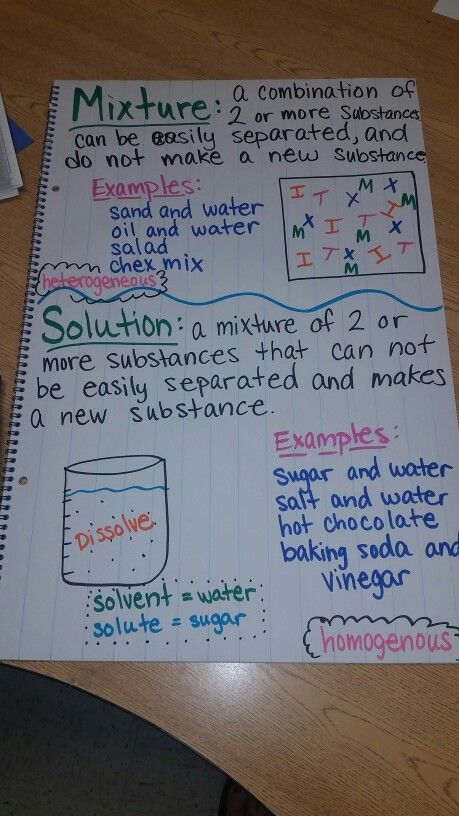 Mixture: a combination of
2 or more substances
can be easily separated, and
do not make a new substance
Examples:
sand and water
oil and water
salad
chex mix
heterogeneous
I T X M X M
M X I T I X
I T X M I T
Solution: a mixture of 2 or
more substances that can not
be easily separated and makes
a new substance.
Examples:
sugar and water
salt and water
hot chocolate
baking soda and
vinegar
Dissolve
solvent = water
solute = sugar
homogenous